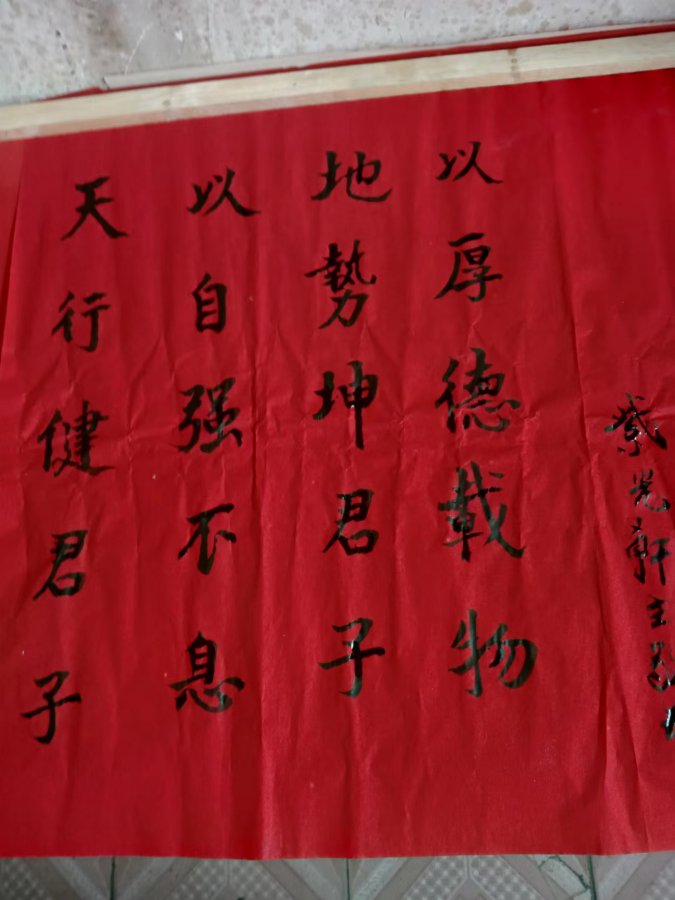 天行健君子
以自强不息
地势坤君子
以厚德载物
紫光轩主